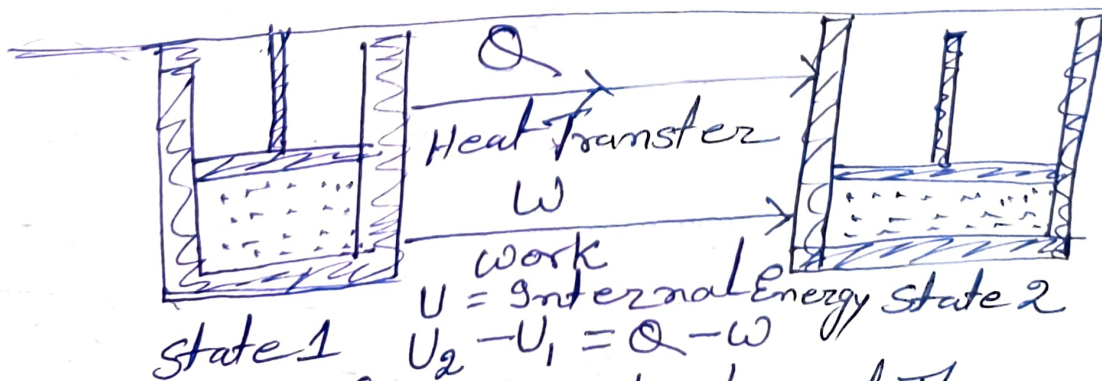 Q
Heat Transfer
W
work
U = Internal Energy
State 2
State 1
U₂ - U₁ = Q - W